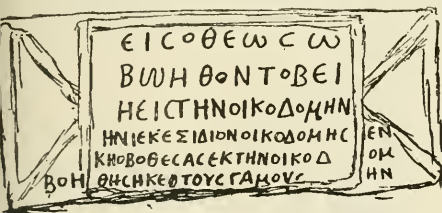 ΕΙCΟΘΕωCω
ΒωΗΘΟΝΤΟΒΕΙ
ΗΕΙCΤΗΝΟΙΚΟΔΟΜΗΝ
ΗΝΙΕΚΕΣΙΔΙΟΝΟΙΚΟΔΟΜΗC ΕΝ
ΚΗΟΒΟΘΕCΑCΕΚΤΗΝΟΙΚΟΔ ΟΜ
ΒΟΗ ΘΗCΗΚΕΘΤΟΥCΓΑΜΟΥC ΗΝ